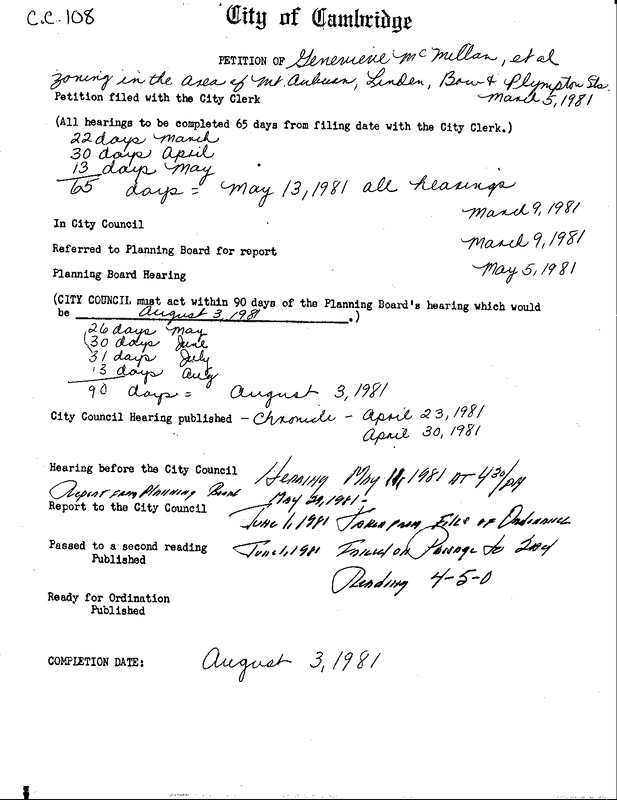 C.C. 108
City of Cambridge
PETITION OF Genevieve McMillan, et al
zoning in the area of Mt. Auburn, Linden, Bow & Plympton Sts.
Petition filed with the City Clerk March 5, 1981
(All hearings to be completed 65 days from filing date with the City Clerk.)
22 days March
30 days April
13 days May
65 days = May 13, 1981 all hearings
In City Council March 9, 1981
Referred to Planning Board for report March 9, 1981
Planning Board Hearing May 5, 1981
(CITY COUNCIL must act within 90 days of the Planning Board's hearing which would
be August 3, 1981 .)
26 days May
30 days June
31 days July
3 days Aug
90 days = August 3, 1981
City Council Hearing published - Chronicle - April 23, 1981
April 30, 1981
Hearing before the City Council Hearing May 11, 1981 AT 4:30/PM
Report from Planning Board May 29, 1981 -
Report to the City Council June 1, 1981 Taken from Files of Ordinance
Passed to a second reading June 1, 1981 Failed on Passage to 2nd
Published
Reading 4-5-0
Ready for Ordination
Published
COMPLETION DATE: August 3, 1981